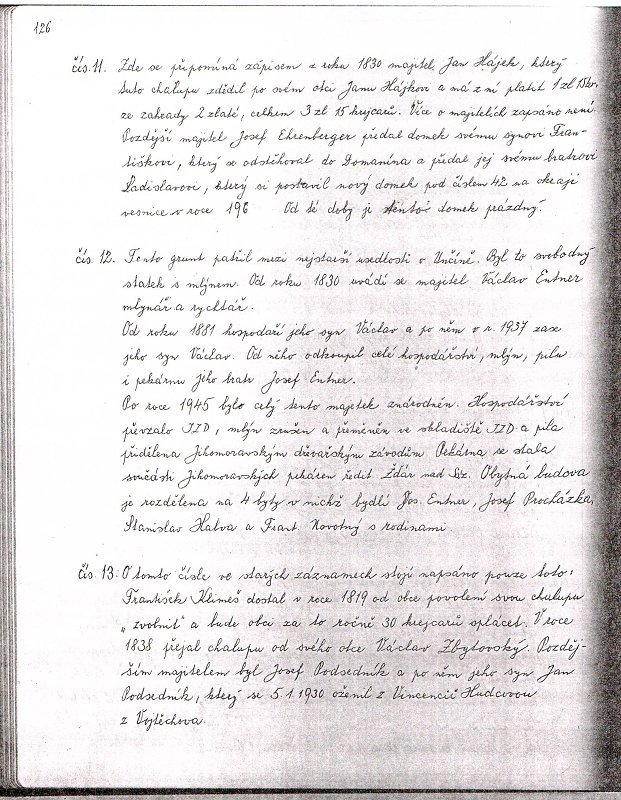 126
čís. 11. Zde se připomíná zápisem z roku 1830 majitel Jan Hájek, který
tuto chalupu zdědil po svém otci Janu Hájkovi a má z ní platit 1 zl 15 kr,
ze zahrady 2 zlaté, celkem 3 zl 15 krejcarů. Více o majitelích zapsáno není.
Pozdější majitel Josef Ehrenberger předal domek svému synovi Fran-
tiškovi, který se odstěhoval do Domanína a předal jej svému bratrovi
Ladislavovi, který si postavil nový domek pod číslem 42 na okraji
vesnice v roce 196 Od té doby je tento domek prázdný.
čís. 12. Tento grunt patřil mezi nejstarší usedlosti v Unčíně. Byl to svobodný
statek s mlýnem. Od roku 1830 uvádí se majitel Václav Entner
mlynář a rychtář.
Od roku 1881 hospodaří jeho syn Václav a po něm v r. 1937 zase
jeho syn Václav. Od něho odkoupil celé hospodářství, mlýn, pilu
i pekárnu jeho bratr Josef Entner.
Po roce 1945 bylo celý tento majetek znárodněn. Hospodářství
převzalo JZD, mlýn zrušen a přeměněn ve skladiště JZD a pila
přidělena Jihomoravským dřevařským závodům. Pekárna se stala
součástí Jihomoravských pekáren ředit. Žďár nad Sáz. Obytná budova
je rozdělena na 4 byty v nichž bydlí Jos. Entner, Josef Procházka,
Stanislav Halva a Frant. Novotný s rodinami.
čís. 13. O tomto čísle ve starých záznamech stojí napsáno pouze toto:
František Klimeš dostal v roce 1819 od obce povolení svou chalupu
„zvolnit" a bude obci za to ročně 30 krejcarů splácet. V roce
1838 přejal chalupu od svého otce Václav Zbytovský. Pozděj-
ším majitelem byl Josef Podsedník a po něm jeho syn Jan
Podsedník, který se 5.1.1930 oženil z Vincencií Hudcovou
z Vojtěchova.